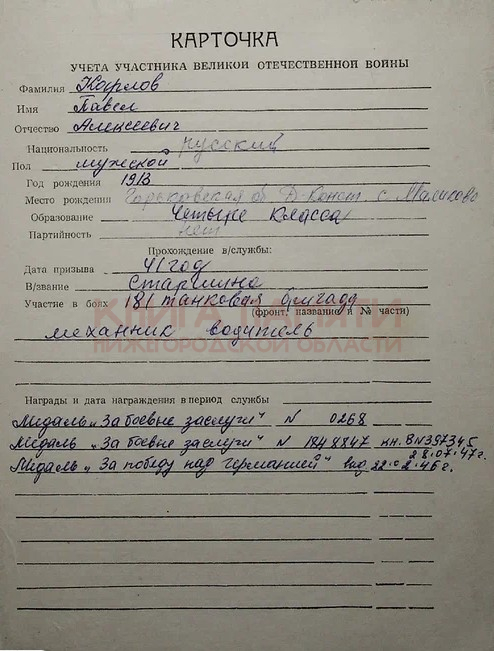 КАРТОЧКА
УЧЕТА УЧАСТНИКА ВЕЛИКОЙ ОТЕЧЕСТВЕННОЙ ВОЙНЫ
Фамилия Карлов
Имя Павел
Отчество Алексеевич
Национальность русский
Пол мужской
Год рождения 1913
Место рождения Горьковская об. Д-Конст. с. Маликово
Образование Четыре класса
Партийность нет
Прохождение в/службы:
Дата призыва 41 год
В/звание Старшина
Участие в боях 181 танковая бригада
(фронт, название и № части)
механник водитель
КНИГА ПАМЯТИ
НИЖЕГОРОДСКОЙ ОБЛАСТИ
Награды и дата награждения в период службы
Медаль „За боевые заслуги" N 0268
Медаль „За боевые заслуги" N 1848847 кн. В N397345
28.07.47г.
Медаль „За победу над германией" 22.02.46г.